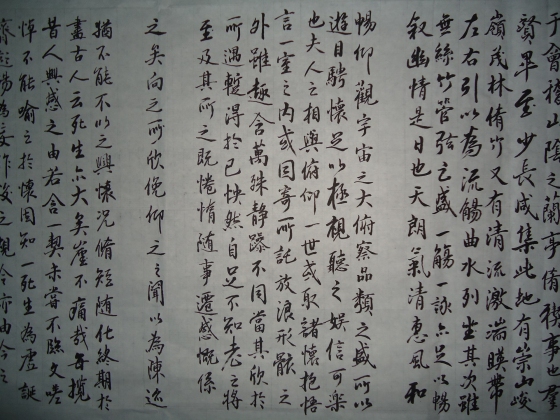 于會稽山陰之蘭亭脩禊事也
賢畢至少長咸集此地有崇山峻
嶺茂林脩竹又有清流激湍暎帶
左右引以為流觴曲水列坐其次雖
無絲竹管弦之盛一觴一詠亦足以暢
敘幽情是日也天朗氣清惠風和
暢仰觀宇宙之大俯察品類之盛所以
遊目騁懷足以極視聽之娛信可樂
也夫人之相與俯仰一世或取諸懷抱悟
言一室之內或因寄所託放浪形骸之
外雖趣舍萬殊靜躁不同當其欣於
所遇暫得於己怏然自足不知老之將
至及其所之既惓情隨事遷感慨係
之矣向之所欣俛仰之間以為陳迹
猶不能不以之興懷況脩短隨化終期於
盡古人云死生亦大矣豈不痛哉每攬
昔人興感之由若合一契未嘗不臨文嗟
悼不能喻之於懷固知一死生為虛誕
齊彭殤為妄作後之視今亦由今之